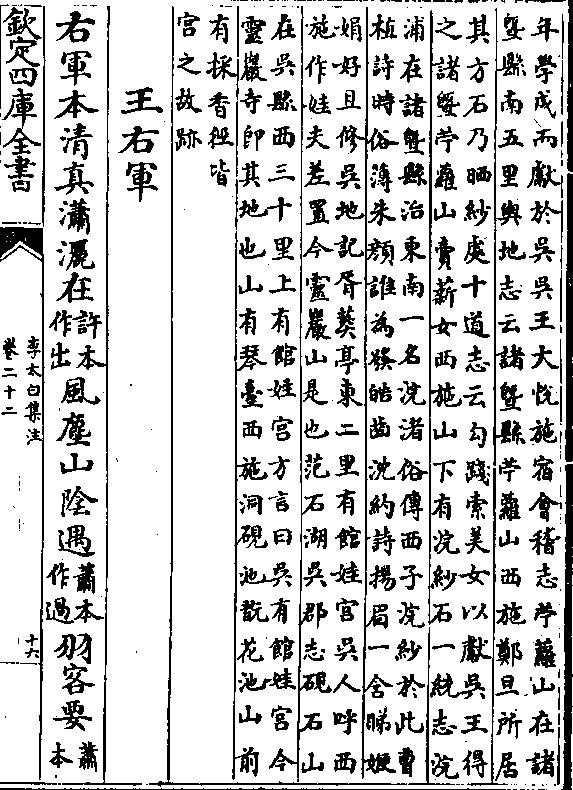 年學成而獻於吳吳王大悅施宿會稽志苧蘿山在諸
曁縣南五里輿地志云諸曁縣苧蘿山西施鄭旦所居
其方石乃晒紗處十道志云勾踐索美女以獻吳王得
之諸曁苧蘿山賣薪女西施山下有浣紗石一統志浣
浦在諸曁縣治東南一名浣渚俗傳西子浣紗於此曹
植詩時俗薄朱顔誰為發皓齒沈約詩揚眉一含睇㛹
娟好且修吳地記胥葬亭東二里有館娃宮吳人呼西
施作娃夫差置今靈巖山是也范石湖吳郡志硯石山
在吳縣西三十里上有館娃宮方言曰吳有館娃宮今
靈巖寺即其地也山有琴臺西施洞硯池翫花池山前
有採香徑皆
宮之故跡
王右軍
右軍本清真瀟灑在許本作出風塵山陰遇蕭本作過羽客要蕭本
欽定四庫全書
李太白集注
卷二十二
十六